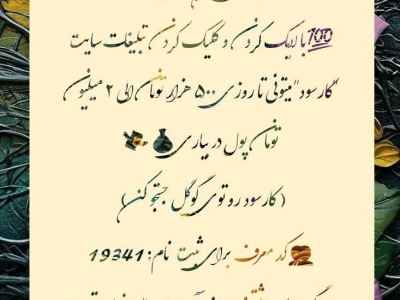 💯با لایک کردن و کلیک کردن تبلیغات سایت
"کارسود" میتونی تا روزی ۵۰۰ هزار تومان الی ۲ میلیون
تومان پول در بیاری💰💸
(کارسود رو توی گوگل جستجو کن)
کد معرف برای ثبت نام: 19341